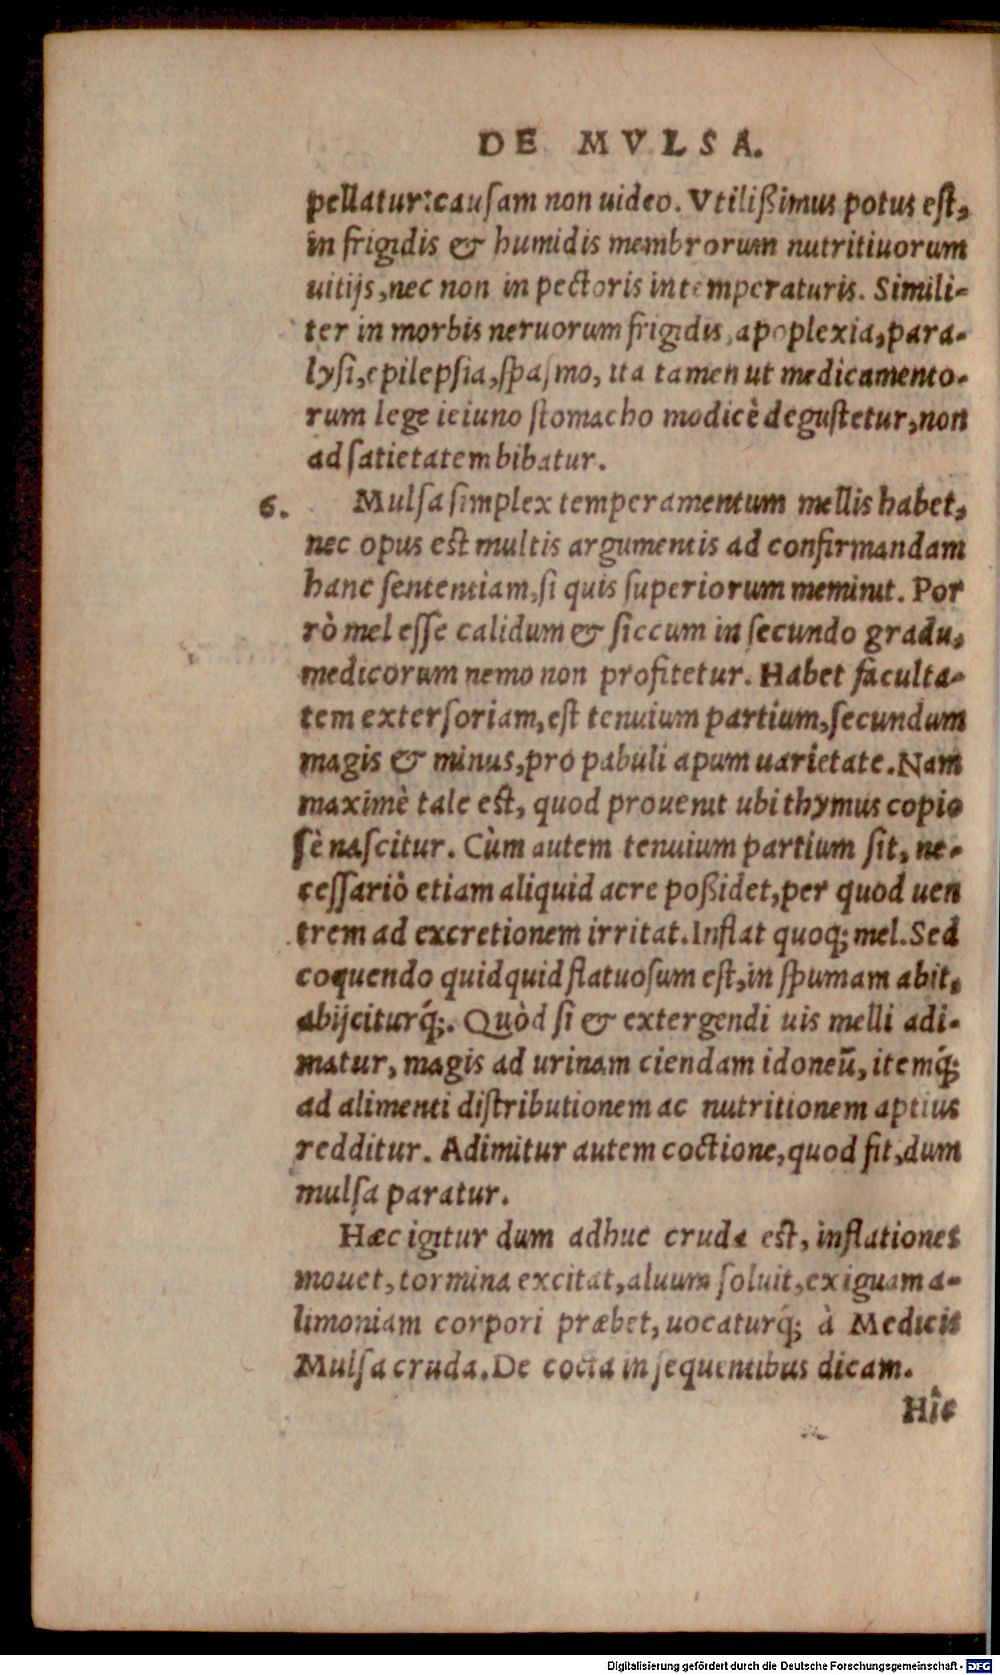 DE MVLSA.
pellatur: causam non uideo. Vtilißimus potus est,
in frigidis & humidis membrorum nutritiuorum
uitijs, nec non in pectoris intemperaturis. Simili-
ter in morbis neruorum frigidis, apoplexia, para-
lysi, epilepsia, spasmo, ita tamen ut medicamento-
rum lege ieiuno stomacho modicè degustetur, non
ad satietatem bibatur.
6. Mulsa simplex temperamentum mellis habet,
nec opus est multis argumentis ad confirmandam
hanc sententiam, si quis superiorum meminit. Por
rò mel esse calidum & siccum in secundo gradu,
medicorum nemo non profitetur. Habet faculta-
tem extersoriam, est tenuium partium, secundum
magis & minus, pro pabuli apum uarietate. Nam
maximè tale est, quod prouenit ubi thymus copio
sè nascitur. Cùm autem tenuium partium sit, ne-
cessariò etiam aliquid acre poßidet, per quod uen
trem ad excretionem irritat. Inflat quoq; mel. Sed
coquendo quidquid flatuosum est, in spumam abit,
abijciturq́;. Quòd si & extergendi uis melli adi-
matur, magis ad urinam ciendam idoneũ, itemq́;
ad alimenti distributionem ac nutritionem aptius
redditur. Adimitur autem coctione, quod fit, dum
mulsa paratur.
Hæc igitur dum adhuc cruda est, inflationes
mouet, tormina excitat, aluum soluit, exiguam a-
limoniam corpori præbet, uocaturq́; à Medicis
Mulsa cruda. De cocta in sequentibus dicam.
Hîc
Digitalisierung gefördert durch die Deutsche Forschungsgemeinschaft - DFG